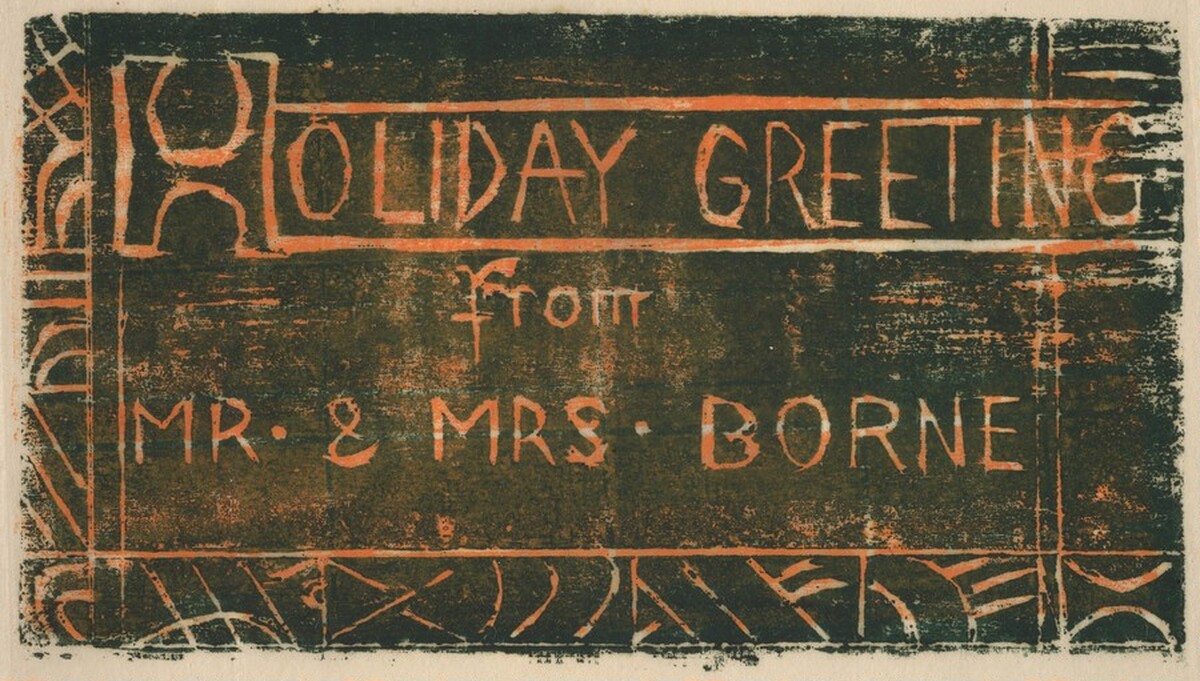 HOLIDAY GREETING
from
MR. & MRS. BORNE